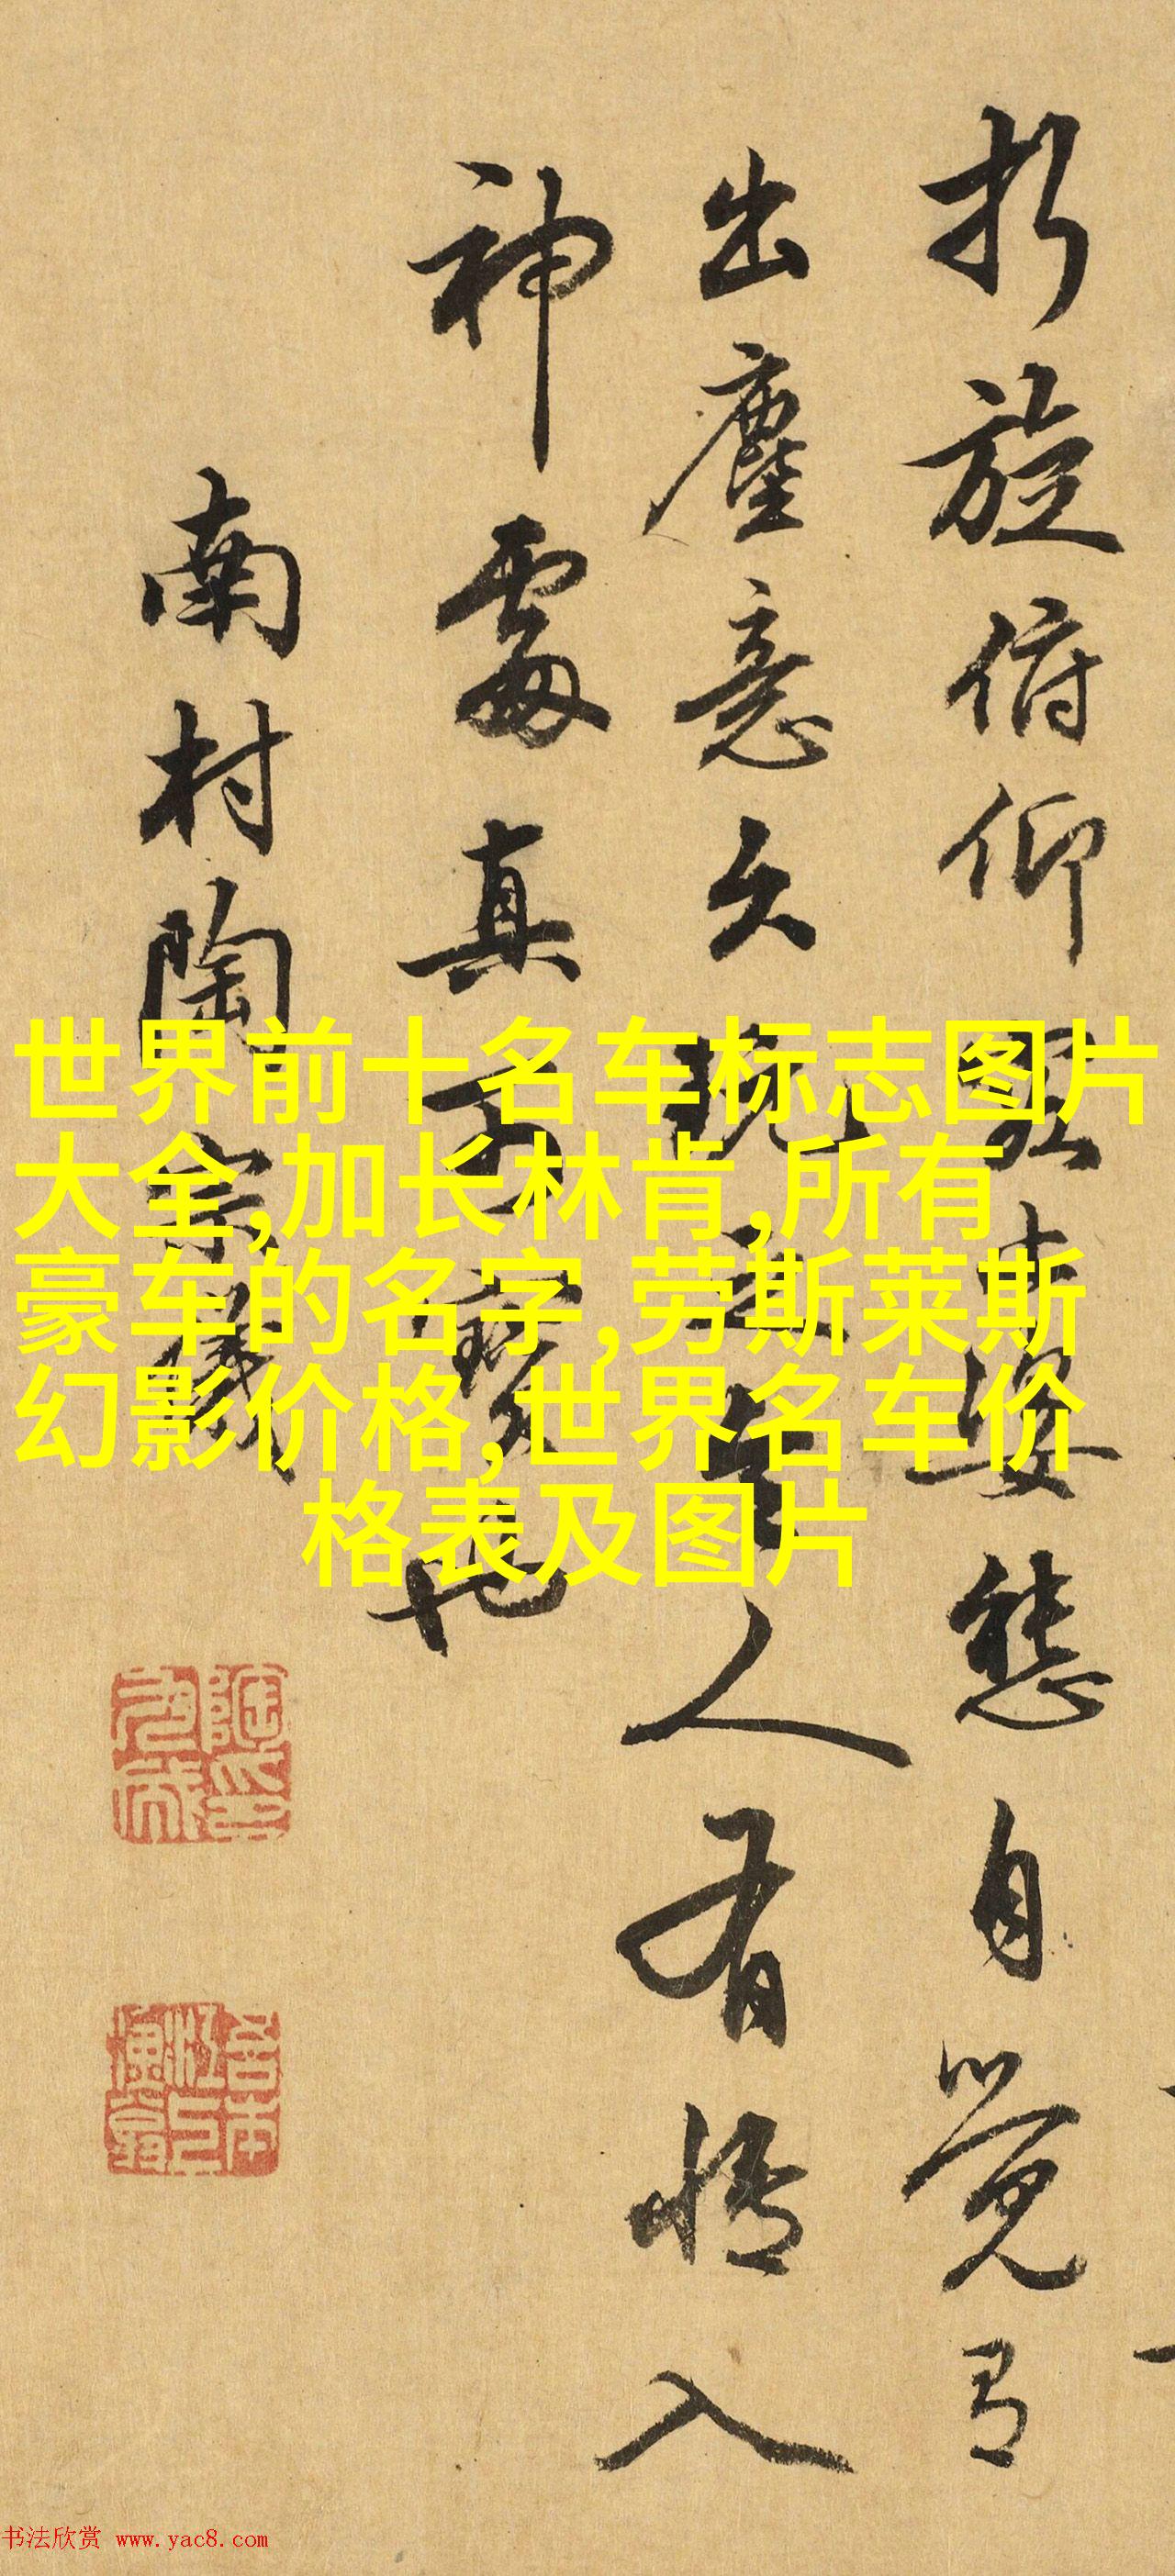 折旋俯仰
姿態自覺有
出塵意久玩
人有情入
神處真可寶也
南村陶宗儀
世界前十名车标志图片
大全,加长林肯,所有
豪车的名字,劳斯莱斯
幻影价格,世界名车价
格表及图片
书法欣赏 www.yac8.com